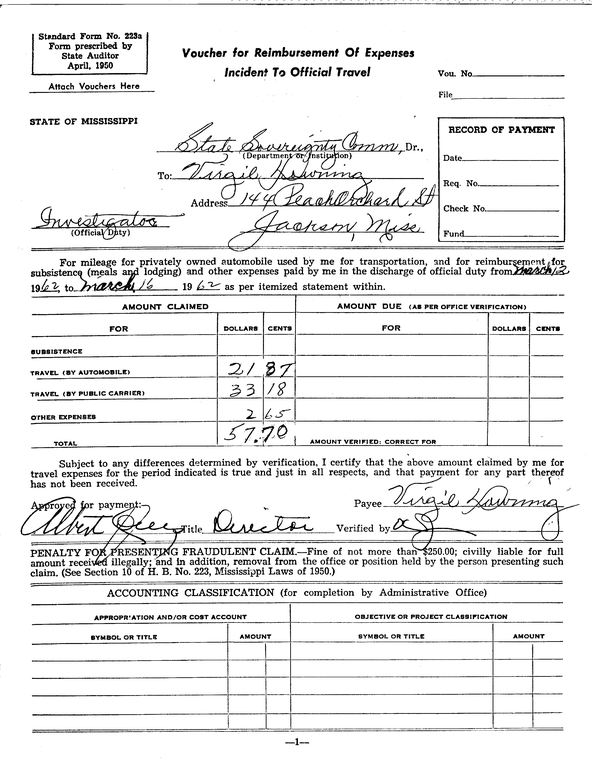 Standard Form No. 223a
Form prescribed by
State Auditor
April, 1950
Attach Vouchers Here
Voucher for Reimbursement Of Expenses
Incident To Official Travel
Vou. No.
File
STATE OF MISSISSIPPI
State Sovereignty Comm, Dr.,
(Department or Institution)
To: Virgil Downing
Address 144 Peach Orchard St
Jackson, Miss
Investigator
(Official Duty)
RECORD OF PAYMENT
Date
Req. No.
Check No.
Fund
For mileage for privately owned automobile used by me for transportation, and for reimbursement for
subsistence (meals and lodging) and other expenses paid by me in the discharge of official duty from March 12
1962, to March 16 1962 as per itemized statement within.
AMOUNT CLAIMED AMOUNT DUE (AS PER OFFICE VERIFICATION)
FOR DOLLARS CENTS FOR DOLLARS CENTS
SUBSISTENCE
TRAVEL (BY AUTOMOBILE) 21 87
TRAVEL (BY PUBLIC CARRIER) 33 18
OTHER EXPENSES 2 65
TOTAL 57.70 AMOUNT VERIFIED: CORRECT FOR
Subject to any differences determined by verification, I certify that the above amount claimed by me for
travel expenses for the period indicated is true and just in all respects, and that payment for any part thereof
has not been received.
Approved for payment: Payee Virgil Downing
Albert Title Director Verified by
PENALTY FOR PRESENTING FRAUDULENT CLAIM.—Fine of not more than $250.00; civilly liable for full
amount received illegally; and in addition, removal from the office or position held by the person presenting such
claim. (See Section 10 of H. B. No. 223, Mississippi Laws of 1950.)
ACCOUNTING CLASSIFICATION (for completion by Administrative Office)
APPROPRIATION AND/OR COST ACCOUNT OBJECTIVE OR PROJECT CLASSIFICATION
SYMBOL OR TITLE AMOUNT SYMBOL OR TITLE AMOUNT
—1—